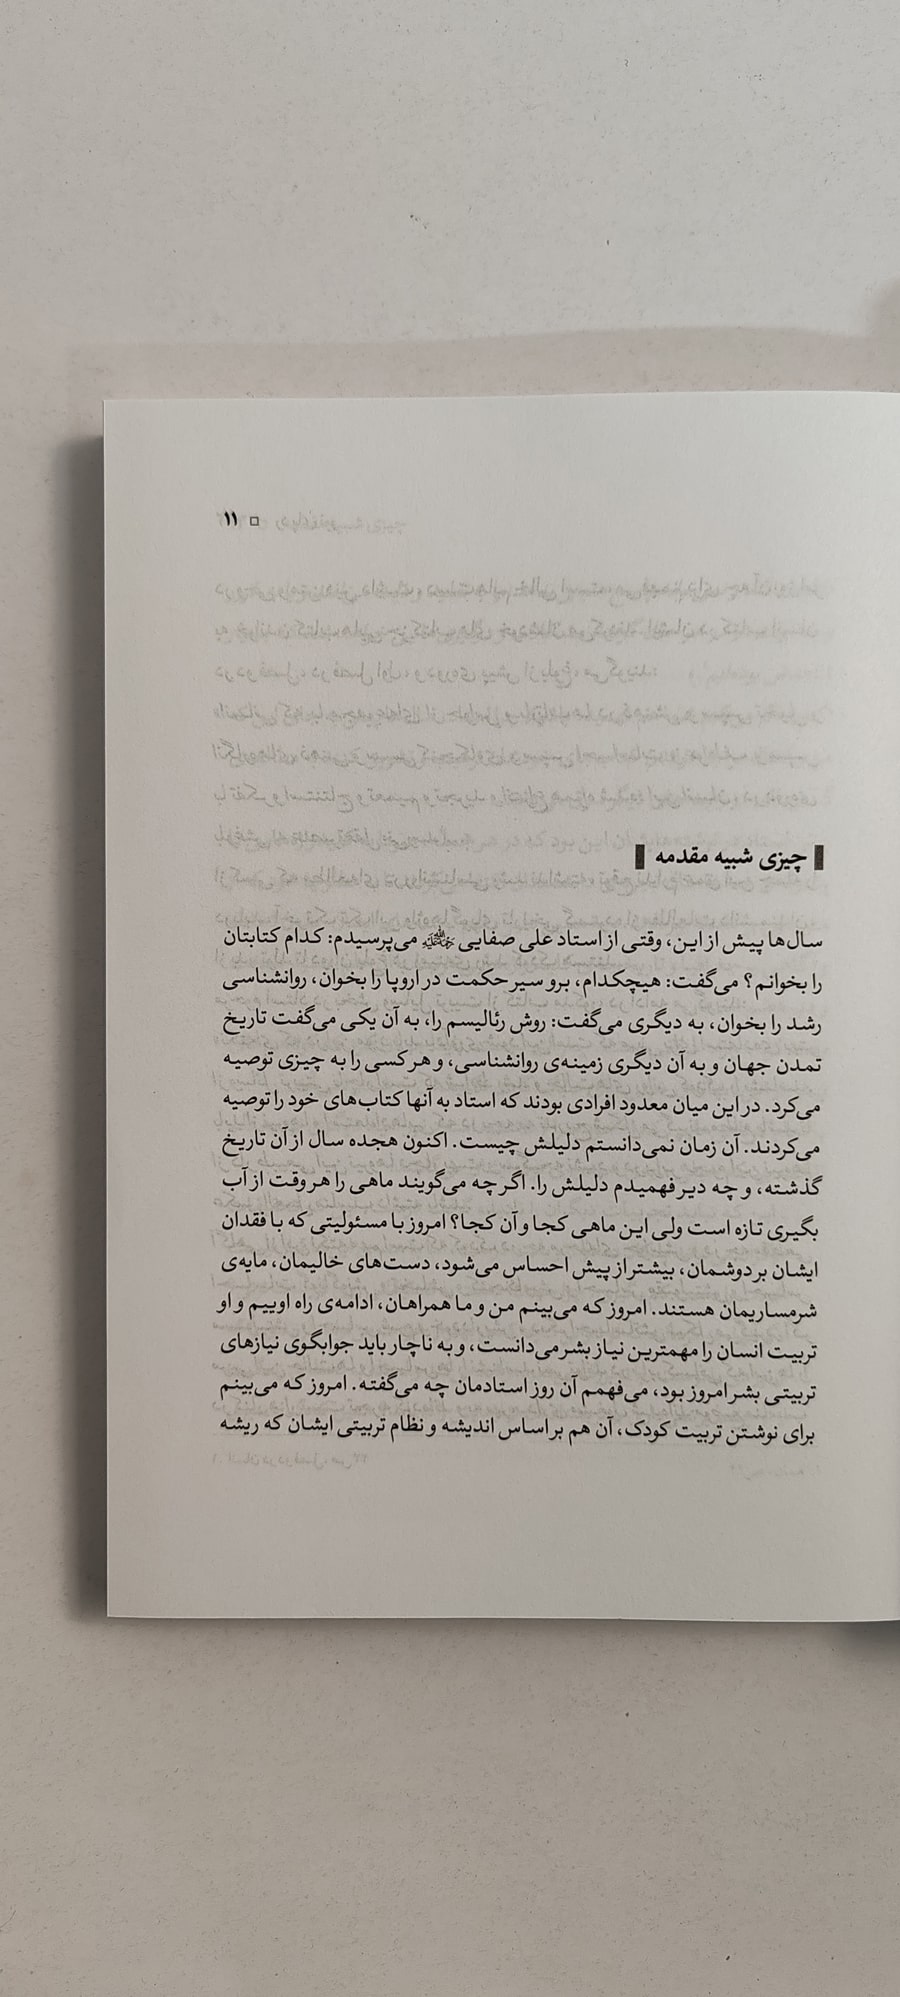 ۱۱
چیزی شبیه مقدمه
سال‌ها پیش از این، وقتی از استاد علی صفایی رحمه‌الله می‌پرسیدم: کدام کتابتان
را بخوانم؟ می‌گفت: هیچکدام، برو سیر حکمت در اروپا را بخوان، روانشناسی
رشد را بخوان، به دیگری می‌گفت: روش رئالیسم را، به آن یکی می‌گفت تاریخ
تمدن جهان و به آن دیگری زمینه‌ی روانشناسی، و هر کسی را به چیزی توصیه
می‌کرد. در این میان معدود افرادی بودند که استاد به آنها کتاب‌های خود را توصیه
می‌کردند. آن زمان نمی‌دانستم دلیلش چیست. اکنون هجده سال از آن تاریخ
گذشته، و چه دیر فهمیدم دلیلش را. اگر چه می‌گویند ماهی را هر وقت از آب
بگیری تازه است ولی این ماهی کجا و آن کجا؟ امروز با مسئولیتی که با فقدان
ایشان بر دوشمان، بیشتر از پیش احساس می‌شود، دست‌های خالیمان، مایه‌ی
شرمساریمان هستند. امروز که می‌بینم من و ما همراهان، ادامه‌ی راه اوییم و او
تربیت انسان را مهمترین نیاز بشر می‌دانست، و به ناچار باید جوابگوی نیازهای
تربیتی بشر امروز بود، می‌فهمم آن روز استادمان چه می‌گفته. امروز که می‌بینم
برای نوشتن تربیت کودک، آن هم بر اساس اندیشه و نظام تربیتی ایشان که ریشه